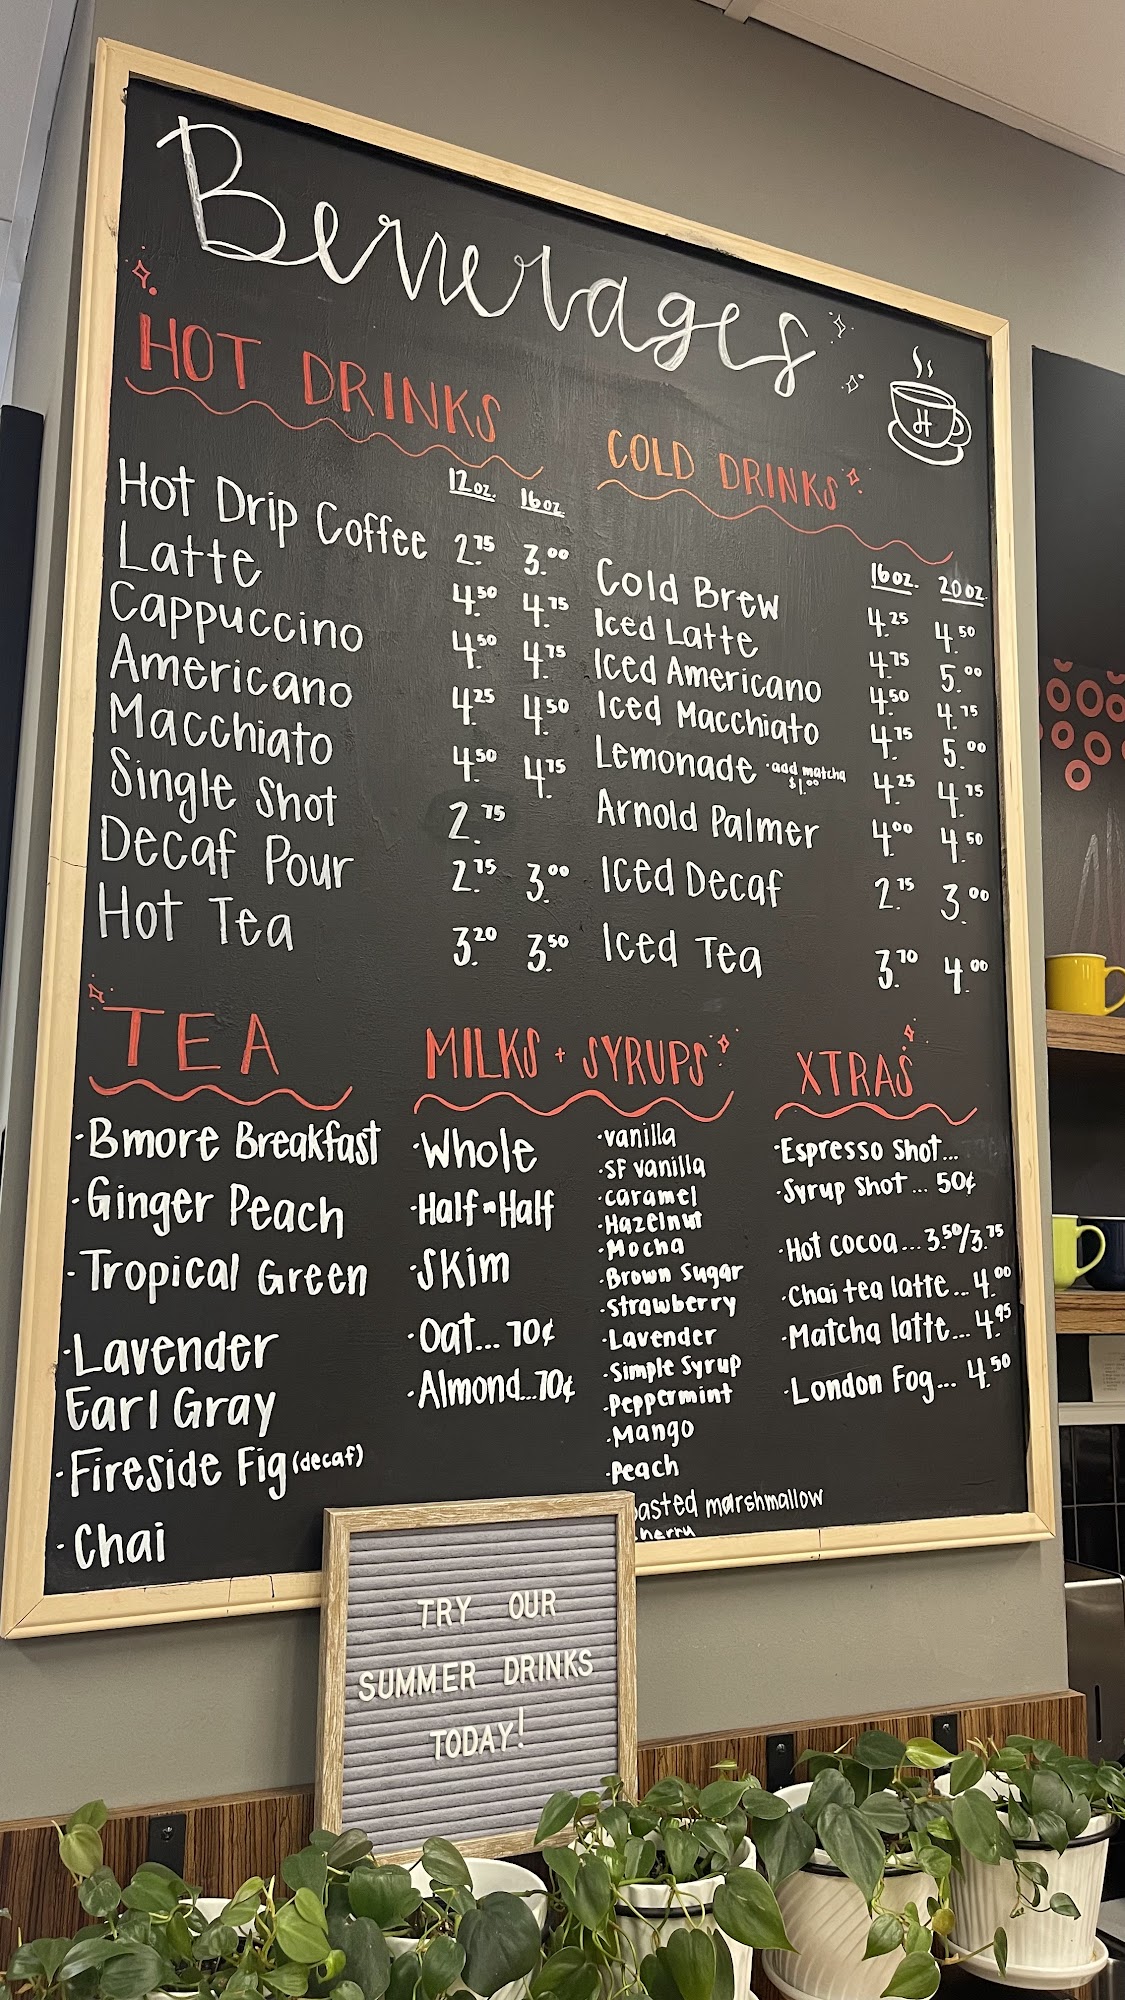 Beverages
HOT DRINKS
12oz. 16oz
Hot Drip Coffee 2.75 3.00
Latte 4.50 4.75
Cappuccino 4.50 4.75
Americano 4.25 4.50
Macchiato 4.50 4.75
Single Shot 2.75
Decaf Pour 2.75 3.00
Hot Tea 3.20 3.50
COLD DRINKS
16oz. 20oz.
Cold Brew 4.25 4.50
Iced Latte 4.75 5.00
Iced Americano 4.50 4.75
Iced Macchiato 4.75 5.00
Lemonade ·add matcha $1.00 4.25 4.75
Arnold Palmer 4.00 4.50
Iced Decaf 2.75 3.00
Iced Tea 3.70 4.00
H
TEA
·Bmore Breakfast
·Ginger Peach
·Tropical Green
·Lavender
Earl Gray
·Fireside Fig (decaf)
·Chai
MILKS + SYRUPS
·Whole
·Half-n-Half
·Skim
·Oat... 70¢
·Almond...70¢
·vanilla
·SF vanilla
·caramel
·Hazelnut
·Mocha
·Brown Sugar
·Strawberry
·Lavender
·Simple Syrup
·Peppermint
·Mango
·Peach
oasted marshmallow
herry
XTRAS
·Espresso Shot...
·Syrup Shot... 50¢
·Hot cocoa...3.50/3.75
·Chai tea latte... 4.00
·Matcha latte... 4.95
·London Fog... 4.50
TRY OUR
SUMMER DRINKS
TODAY!